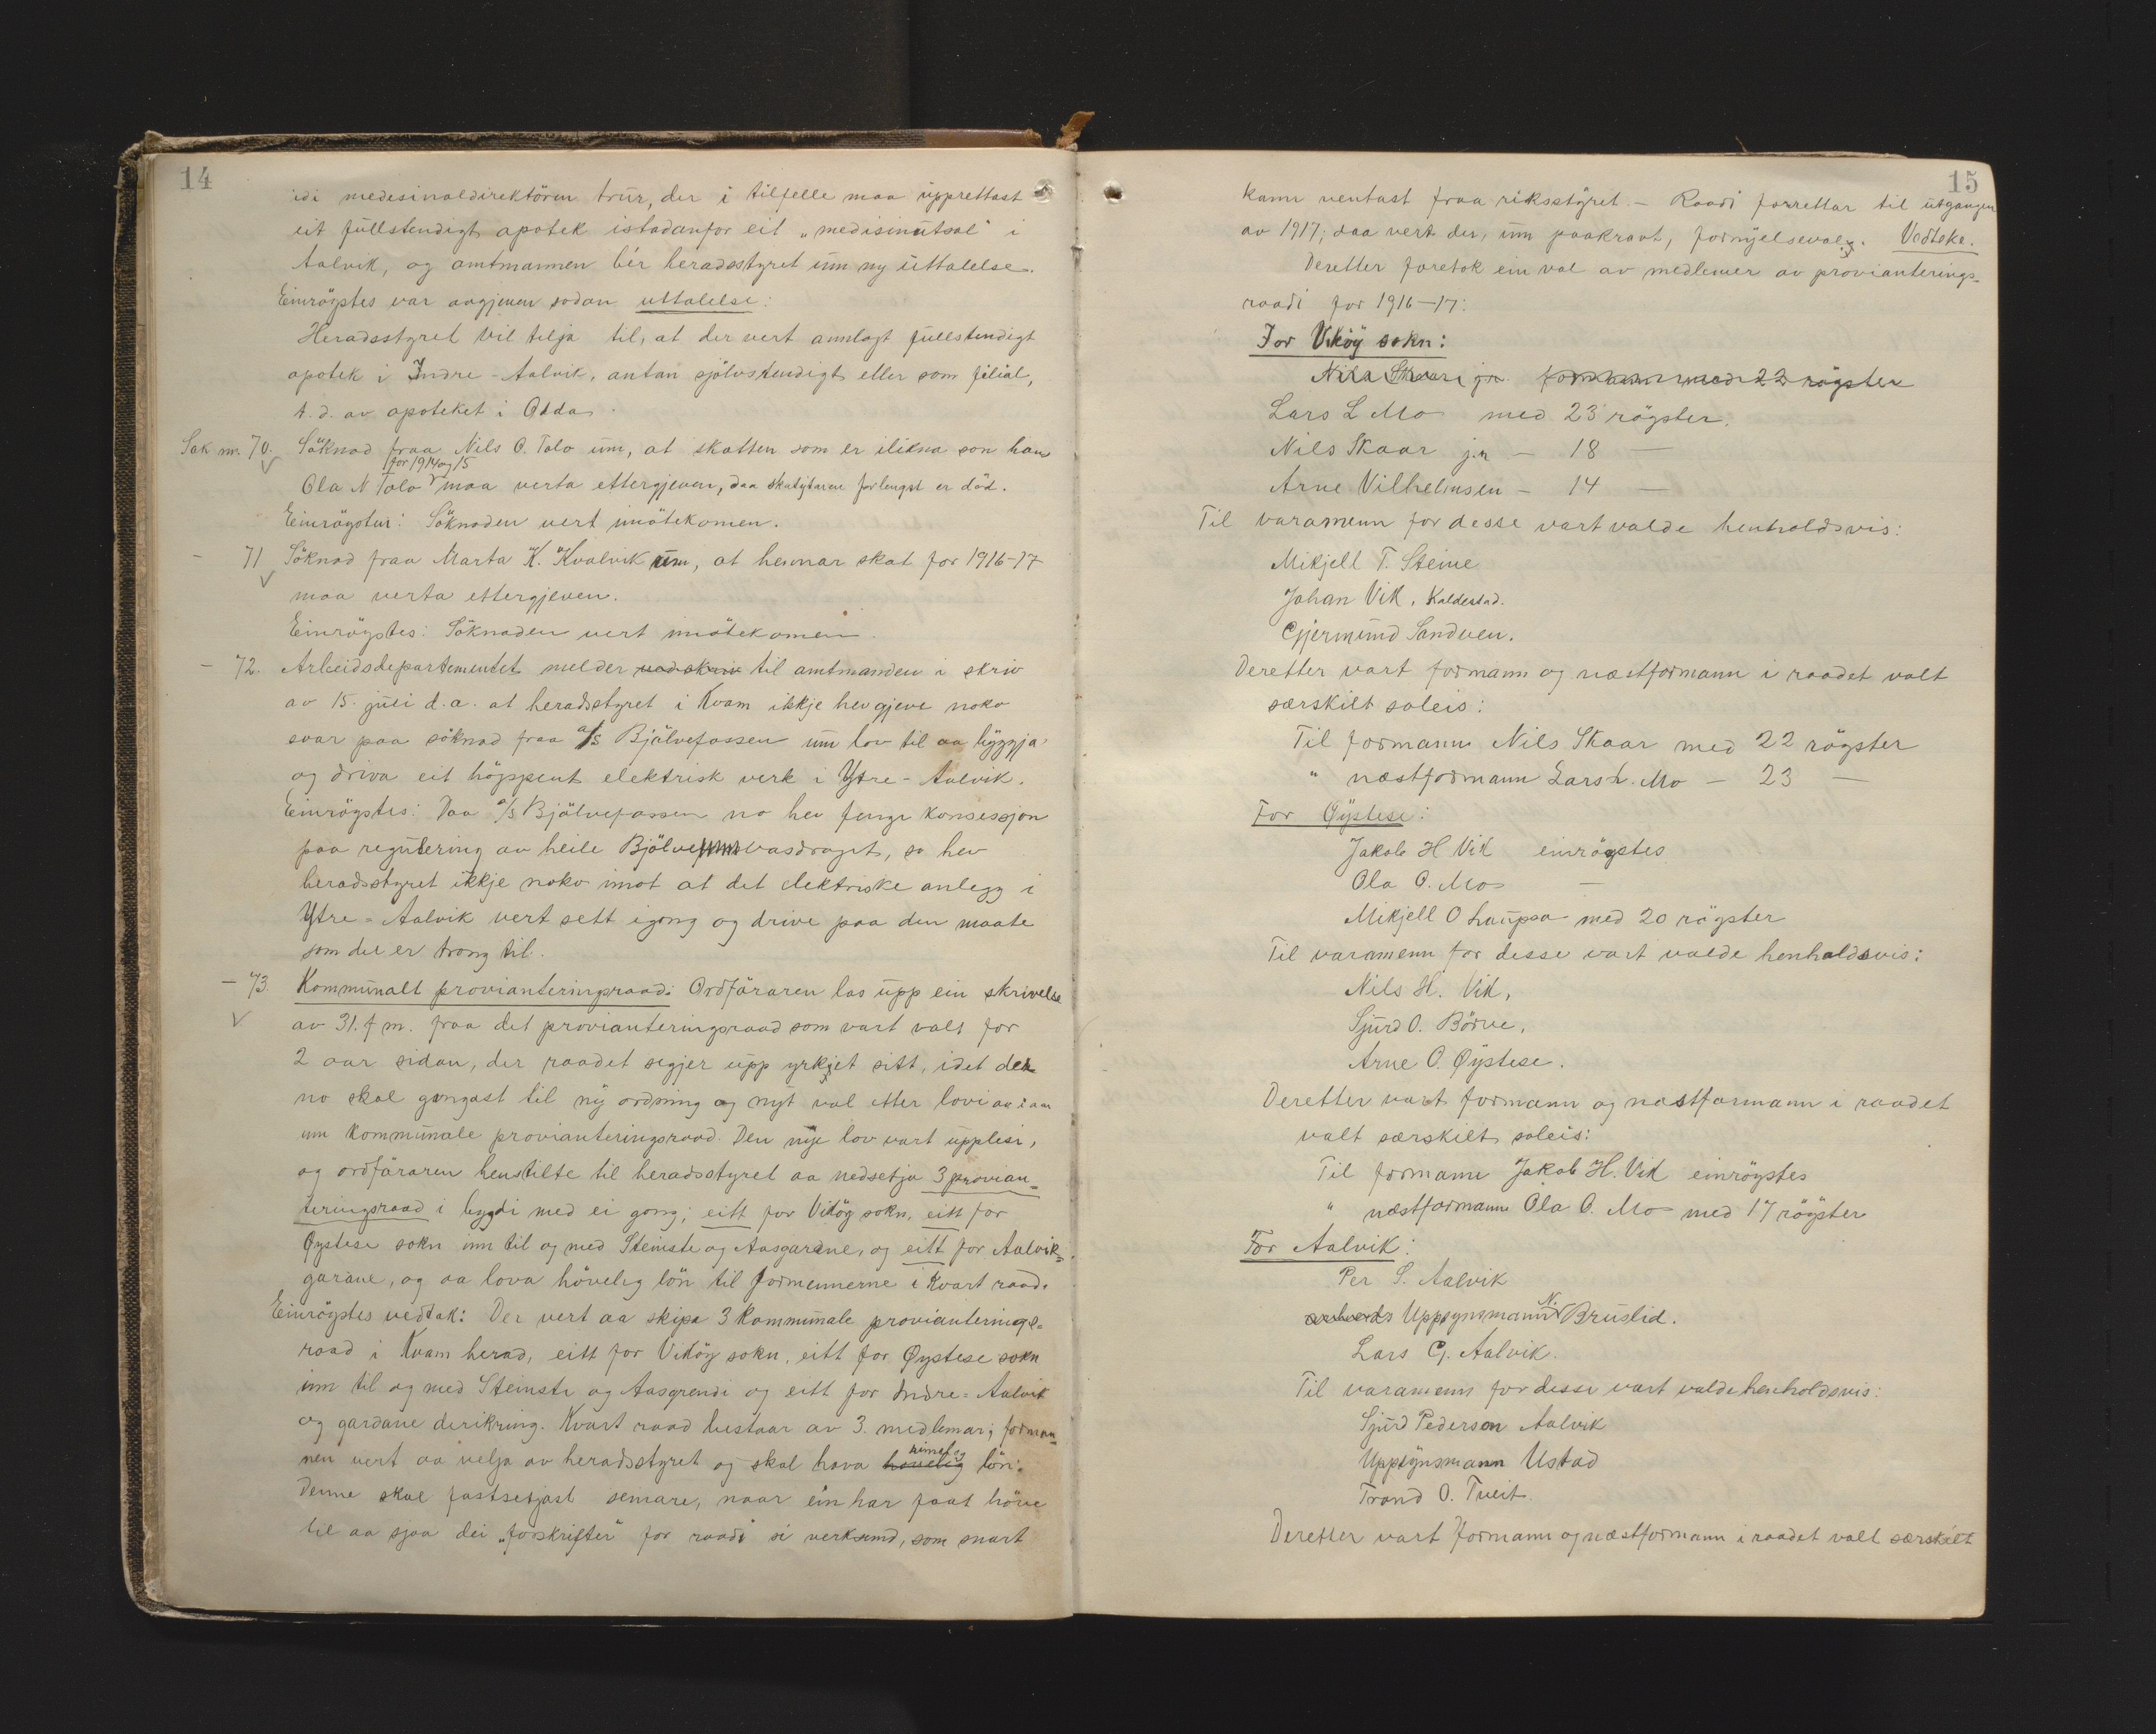 14
idi medesinaldirektören trur, der i tilfelle maa upprettast
eit fullstendigt apotek istadanfor eit „medisinutsal" i
Aalvik, og amtmannen bér heradsstyret um ny uttalelse.
Einrögstes var avgjeven sodan uttalelse:
Heradsstyret vil telja til, at der vert annlagt fullstendigt
apotek i Indre-Aalvik, antan sjölvstendigt eller som filial,
t.d. av apoteket i Odda.
Sak nr. 70. Söknad fraa Nils O. Tolo um, at skatten som er ilikna son hans
for 1914 og 15
Ola N Tolo maa verta ettergjeven, daa skatytaren forlengst er död.
Einrögstur: Söknaden vert imötekomen.
— 71 Söknad fraa Marta K. Kvalvik um, at hennar skat for 1916-17
maa verta ettergjeven.
Einrögstes: Söknaden vert imötekomen.
— 72. Arbeidsdepartementet melder ved skriv til amtmanden i skriv
av 15. juli d.a. at heradsstyret i Kvam ikkje hev gjeve noko
svar paa söknad fraa a/s Bjölvefossen um lov til aa byggja
og driva eit höppent elektrisk verk i Ytre-Aalvik.
Einrögstes: Daa a/s Bjölvefossen no hev fengi konsessjon
paa regulering av heile Bjölvevasdraget, so hev
heradsstyret ikkje noko imot at det elektriske anlegg i
Ytre-Aalvik vert sett igong og drive paa den maate
som det er trong til.
— 73. Kommunalt provianteringsraad: Ordföraren las upp ein skrivelse
av 31. f m. fraa det provianteringsraad som vart valt for
2 aar sidan, der raadet segjer upp yrkjet sitt, idet der
no skal gongast til ny ordning og nyt val etter lovi av iaar
um kommunale provianteringsraad. Den nye lov vart upplesi,
og ordföraren henstilte til heradsstyret aa nedsetja 3 provian-
teringsraad i bygdi med ei gong; eitt for Viköy sokn, eitt for
Øystese sokn inn til og med Steinstö og Aasgardane, og eitt for Aalvik-
gardane, og aa lova hövelig lön til formennerne i kvart raad.
Einrögstes vedtak: Der vert aa skipa 3 kommunale provianterings-
raad i Kvam herad, eitt for Viköy sokn, eitt for Øystese sokn
inn til og med Steinstö og Aasgrendi og eitt for Indre-Aalvik
og gardane derikring. Kvart raad bestaar av 3. medlemar; forman-
nen vert aa velja av heradsstyret og skal hava hövelig rimeleg lön.
Denne skal fastsetjast semare, naar ein har faat höve
til aa sjaa dei „forskrifter" for raadi si verksemd, som snart
15
kann ventast fraa riksstyret. — Raadi forrettar til utgangen
av 1917; daa vert der, um paakravt, fornyelsevalg. Vedteke.
Deretter foretok ein val av medlemer av provianterings-
raadi for 1916-17:
For Viköy sokn:
Nils Skaar jr. formann med 22 rögster
Lars L Mo med 23 rögster.
Nils Skaar j.r — 18 —
Arne Vilhelmsen — 14 —
Til varamenn for desse vart valde henholdsvis:
Mikjell T. Steine
Johan Vik, Kaldestad.
Gjermund Sandven.
Deretter vart formann og næstformann i raadet valt
særskilt soleis:
Til formann Nils Skaar med 22 rögster
" næstformann Lars L. Mo — 23 —
For Øystese:
Jakob H Vik einrögstes
Ola O. Mo —
Mikjell O Laupsa med 20 rögster
Til varamenn for desse vart valde henholdsvis:
Nils H. Vik,
Sjurd O. Börve,
Arne O. Øystese.
Deretter vart formann og næstformann i raadet
valt særskilt soleis:
Til formann Jakob H. Vik einrögstes
" næstformann Ola O. Mo med 17 rögster
For Aalvik:
Per S. Aalvik
arbeids Uppsynsmann N. Bruslid.
Lars G. Aalvik.
Til varamenn for desse vart valde henholdsvis:
Sjurd Pederson Aalvik
Uppsynsmann Ustad
Trond O. Tveit.
Deretter vart formann og næstformann i raadet valt særskilt